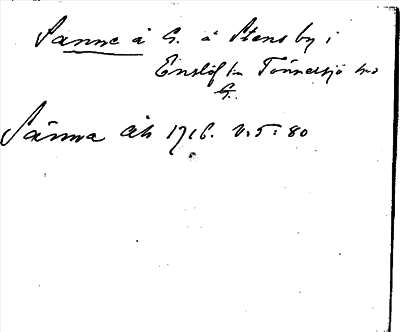 Sanne å G. å Stens by i
Enslöf sn Tönnersjö hd
G.
Sänna åh 1716. V:5:80